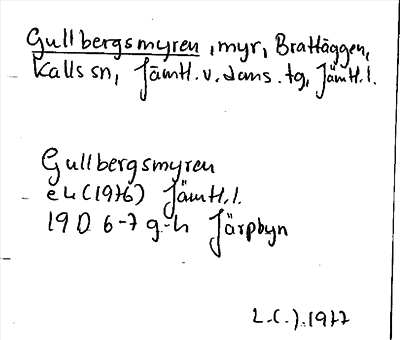 Gullbergsmyren, myr, Brattäggen,
Kalls sn, Jämtl. v. doms. tg, Jämtl. l.
Gullbergsmyren
ek (1976) Jämtl. l.
19 D 6-7 g-h Järpbyn
L.(.).1977